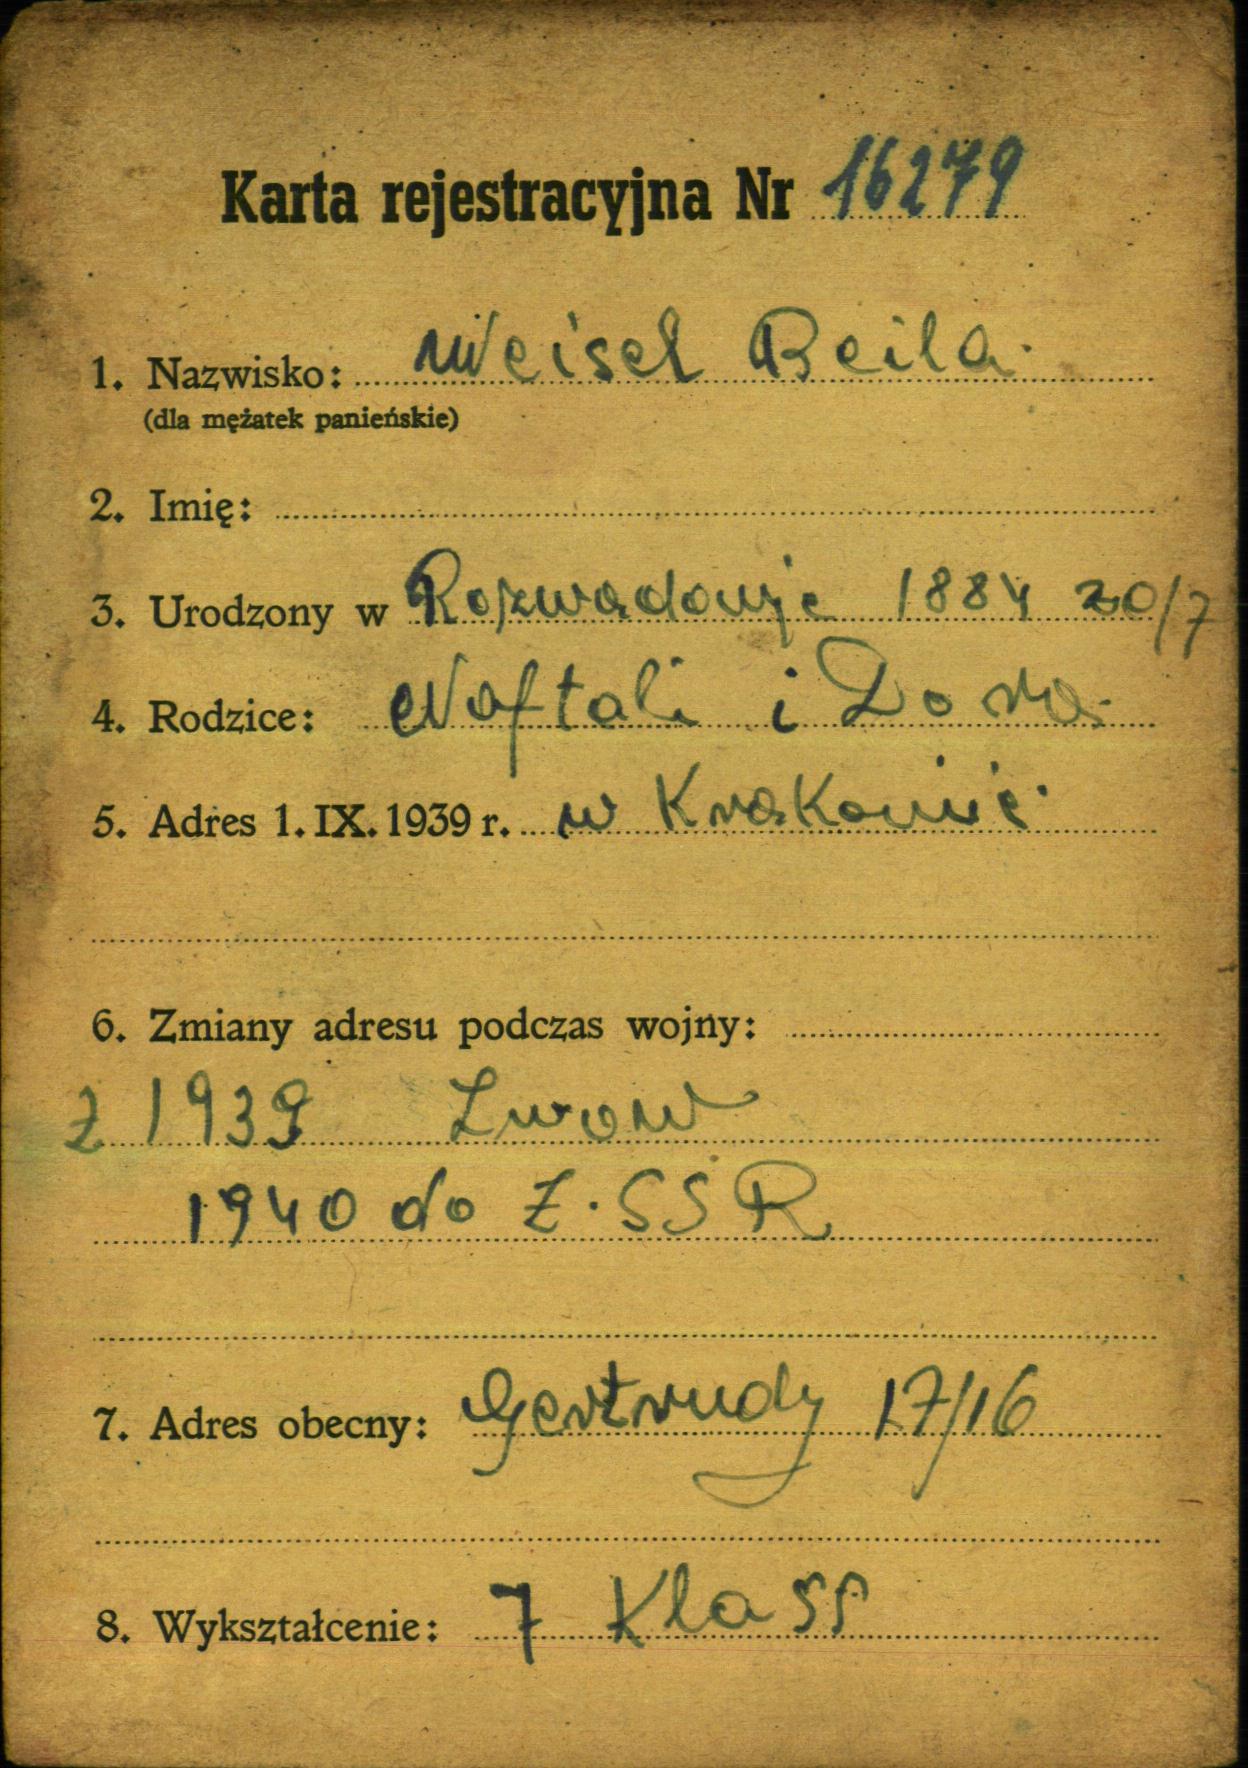 Karta rejestracyjna Nr 16279
1. Nazwisko: Weisel Beila
(dla mężatek panieńskie)
2. Imię:
3. Urodzony w Rozwadowje 1884 20/7
4. Rodzice: Naftali i Dora
5. Adres 1. IX. 1939 r. w Krakowie
6. Zmiany adresu podczas wojny:
z 1939 Lwow
1940 do Z.SSR
7. Adres obecny: Gertrudy 17/16
8. Wykształcenie: 7 Klass